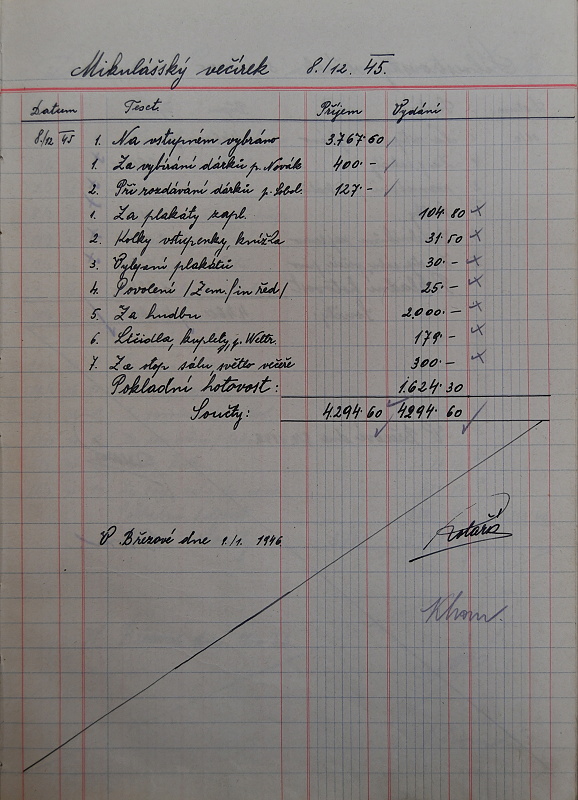 Mikulášský večírek 8./12. 45.
Datum Text. Příjem Vydání
8./12 45 1. Na vstupném vybráno 3.767 60
1. Za vybírání dárků p. Novák 400.-
2. Při rozdávání dárků p. Sobol. 127.-
1. Za plakáty zapl. 104 80
2. Kolky vstupenky, knížka 31. 50
3. Vylepení plakátů 30.-
4. Povolení /Zem. fin řed/ 25.-
5. Za hudbu 2.000.-
6. Líčidla, kuplety, p. 179.-
7. Za stop sálu světlo večeře 300.-
Pokladní hotovost: 1.624 30
Součty: 4.294 60 4294 60
V Březové dne 1./1. 1946